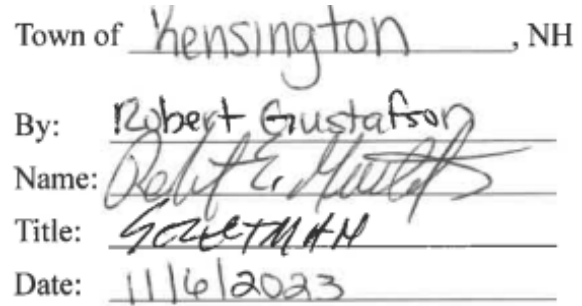 Town of Kensington, NH
By: Robert Gustafson
Name: Robert E. Gustafson
Title: SELECTMAN
Date: 11/6/2023